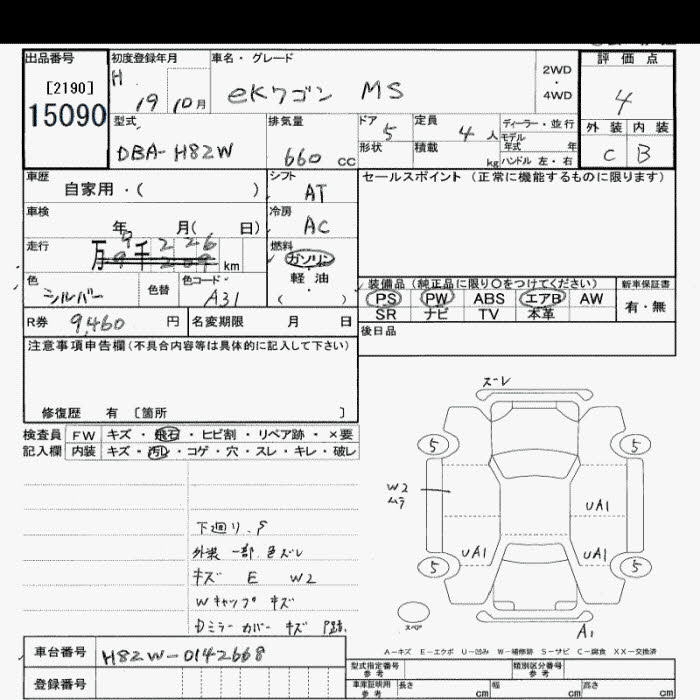 出品番号 初度登録年月 車名・グレード 評価点
[2190] H 19 10月 eKワゴン MS 2WD・4WD 4
15090 型式 排気量 ドア 5 定員 4人 ディーラー・並行 外装 内装
DBA-H82W 660 CC 形状 積載 kg モデル年式 年 ハンドル 左・右 C B
車歴 シフト セールスポイント (正常に機能するものに限ります)
自家用・( ) AT
車検 冷房
年 月( 日) AC
走行 万 9千 2 2 6 km 燃料
ガソリン・軽油・( )
色 色替 色コード 装備品(純正品に限り○をつけてください) 新車保証書
シルバー A31 PS PW ABS エアB AW 有・無
R券 9,460 円 名変期限 月 日 SR ナビ TV 本革
注意事項申告欄(不具合内容等は具体的に記入して下さい) 後日品
修復歴 有 〔箇所 〕
検査員 FW キズ・飛石・ヒビ割・リペア跡・×要
記入欄 内装 キズ・汚レ・コゲ・穴・スレ・キレ・破レ
スーレ
5 5
W2 ムラ
UA1
UA1 UA1
5 5
スペア
A1
下廻り.P
外装 一部 色ズレ
キズ E W2
Wキャップ キズ
Dミラーカバー キズ P跡.
A-キズ E-エクボ U-凹み W-補修跡 S-サビ C-腐食 XX-交換済
車台番号 H82W-0142668
型式指定番号 参考 類別区分番号 参考
登録番号 車庫証明用 参考 長さ cm 幅 cm 高さ cm